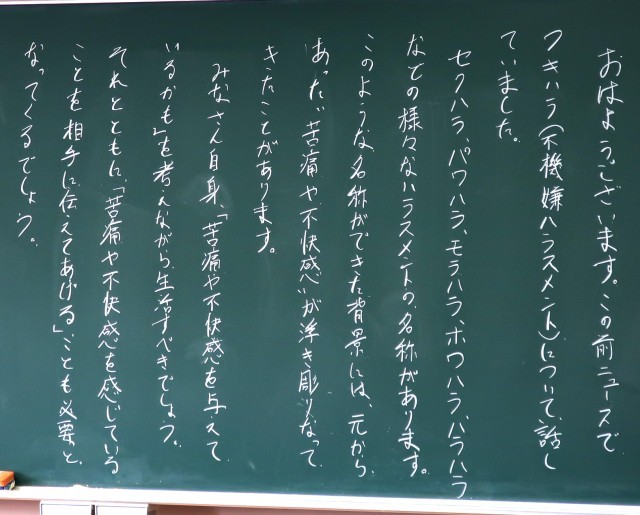 おはようございます。この前ニュースで
フキハラ(不機嫌ハラスメント)について、話し
ていました。
セクハラ、パワハラ、モラハラ、ホワハラ、ハラハラ
などの様々なハラスメントの名称があります。
このような名称ができた背景には、元から
あった“苦痛や不快感”が浮き彫りなって
きたことがあります。
みなさん自身、「苦痛や不快感を与えて
いるかも」を考えながら生活すべきでしょう。
それとともに、「苦痛や不快感を感じている
ことを相手に伝えてあげる」ことも必要と
なってくるでしょう。